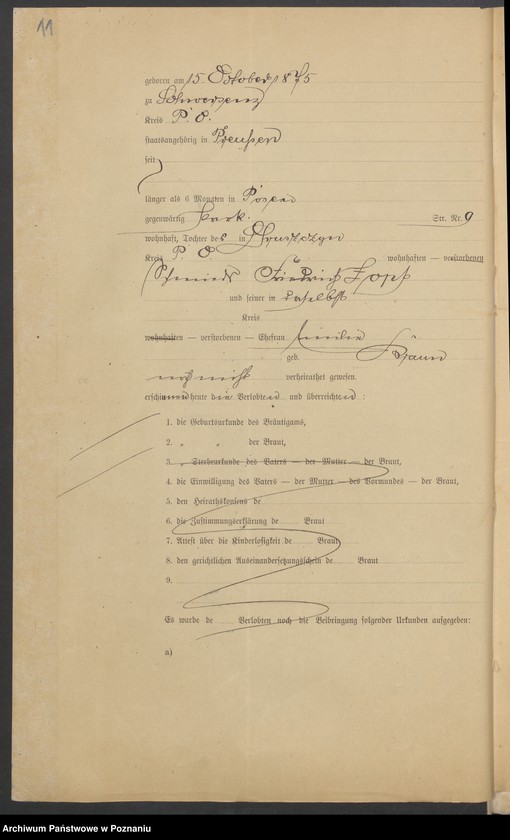 11
geboren am 15 October 1875
zu Schwersenz
Kreis P. O.
staatsangehörig in Preußen
seit
länger als 6 Monaten in Posen
gegenwärtig Park. Str. Nr. 9
wohnhaft, Tochter des in Gruszczyn
Kreis P. O wohnhaften — verstorbenen
Schmieds Friedrich Zopf
und seiner in daselbst
Kreis
wohnhaften — verstorbenen — Ehefrau Emilie
geb. Braun
noch nicht verheirathet gewesen.
erschienen heute die Verlobten und überreichten :
1. die Geburtsurkunde des Bräutigams,
2. „ „ der Braut,
3. „ Sterbeurkunde des Vaters — der Mutter — der Braut,
4. die Einwilligung des Vaters — der Mutter — des Vormundes — der Braut,
5. den Heirathskonsens de
6. die Zustimmungserklärung de Braut
7. Attest über die Kinderlosigkeit de Braut
8. den gerichtlichen Auseinandersetzungsschein de Braut
9.
Es wurde de Verlobten noch die Beibringung folgender Urkunden aufgegeben:
a)
Archiwum Państwowe w Poznaniu